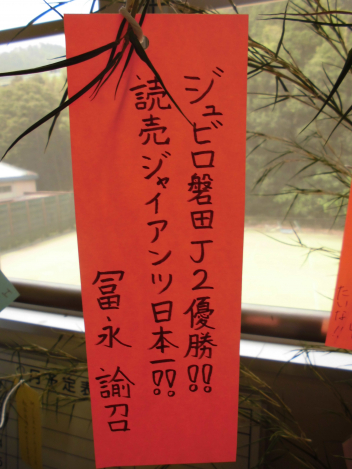 ジュビロ磐田J2優勝!!
読売ジャイアンツ日本一!!
冨永諭召
たいな!!
予定表